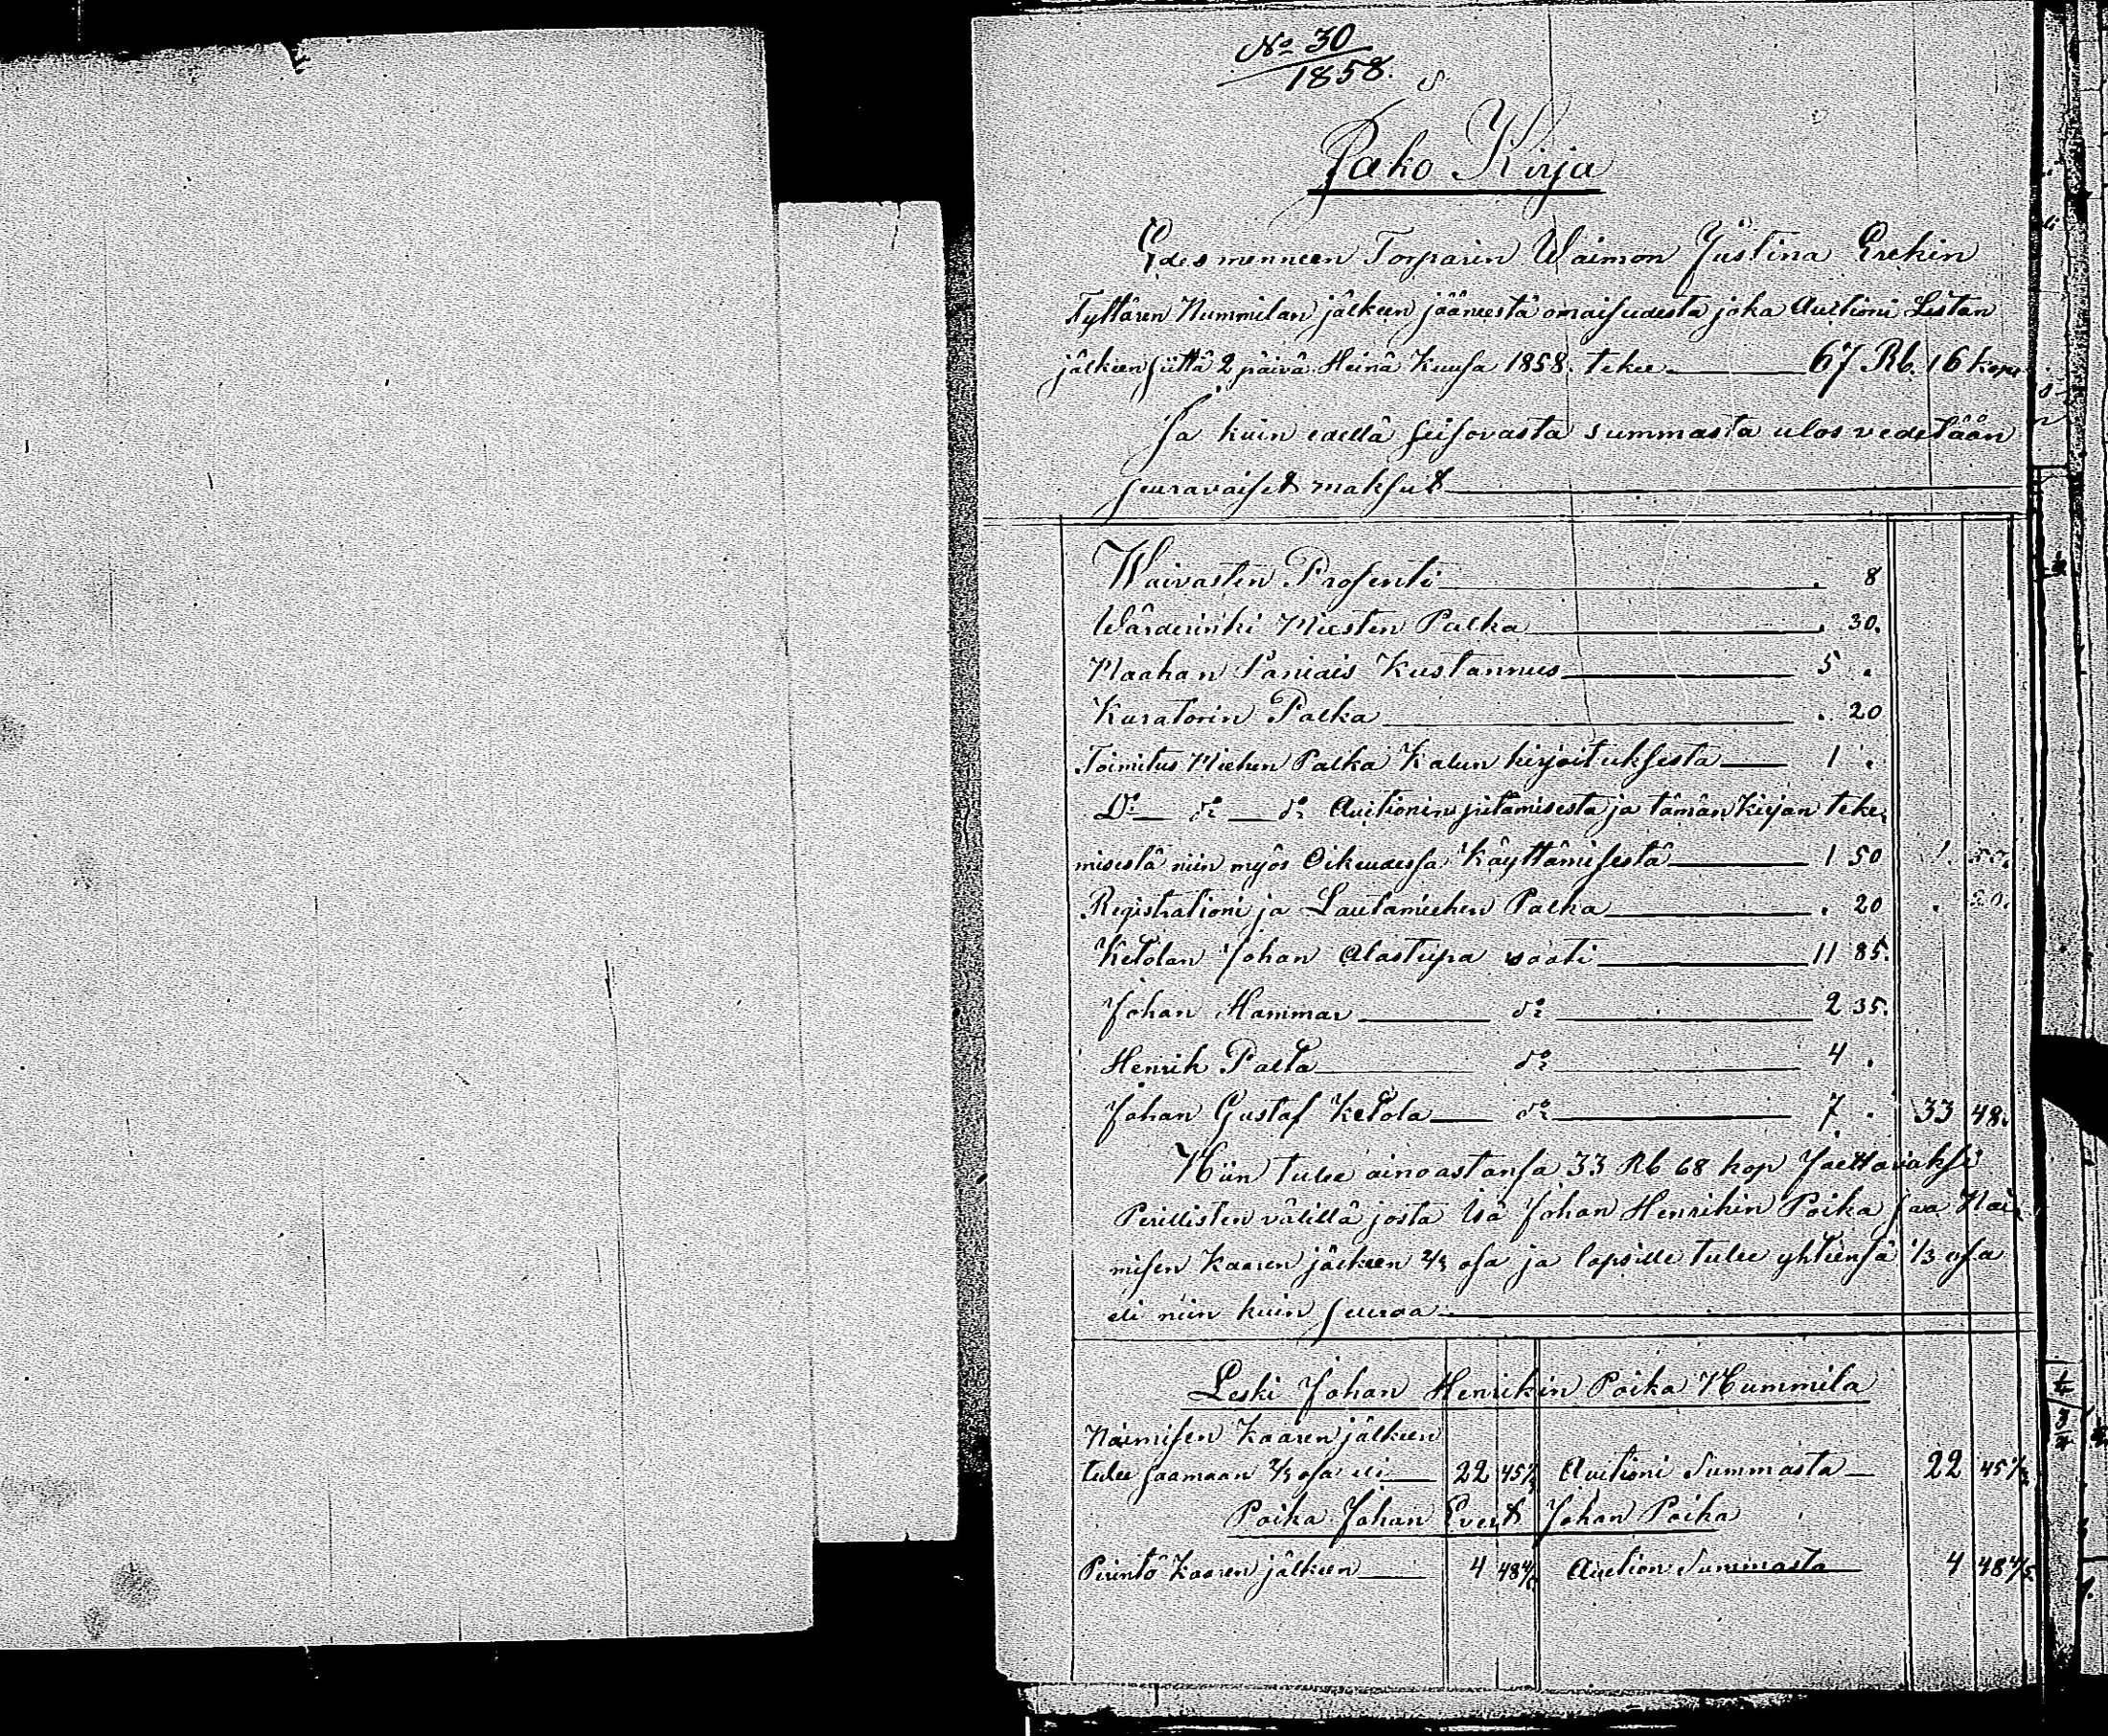 No 30
1858.
Jako Kirja
Edesmenneen Torparin Waimon Justina Erekin
Tyttären Nummilan jälkeen jääneestä omaisudesta joka Auctioni Listan
jälkeen siittä 2 päivä Heinä Kuusa 1858. tekee 67 Rb. 16 kop.
Ja kuin edellä seisovasta summasta ulos vedetään
seuravaiset maksut
Waivasten Prosenti . 8
Wärderinki Miesten Palka . 30.
Maahan Paniais Kustannus 5 .
Kuratorin Palka . 20
Toimitus Miehen Palka Kalun kirjoituksesta 1 .
Do do do Auctionin pitämisestä ja tämän Kirjan teke,
misestä niin myös Oikeudessa Käyttämisestä 1 50 1. 50.
Registrationi ja Lautamiehen Palka . 20 . 20.
Ketolan Johan Alastupa vaati 11 85.
Johan Hammar do 2 35.
Henrik Palta do 4 .
Johan Gustaf Ketola do 7 . 33 48.
Niin tulee ainoastansa 33 Rb 68 kop Jaettavaksi
Perillisten välillä josta Isä Johan Henrikin Poika saa Nai,
misen Kaaren jälkeen 2/3 osa ja lapsille tulee yhteensä 1/3 osa
eli niin kuin seuraa
Leski Johan Henrikin Poika Nummila
Naimisen Kaaren jälkeen
tulee saamaan 2/3 osa eli 22 45 1/3 Auctioni Summasta 22 45 1/3
Poika Johan Evert Johan Poika
Perintö Kaaren jälkeen 4 48 4/5 Auction Summasta 4 48 4/5